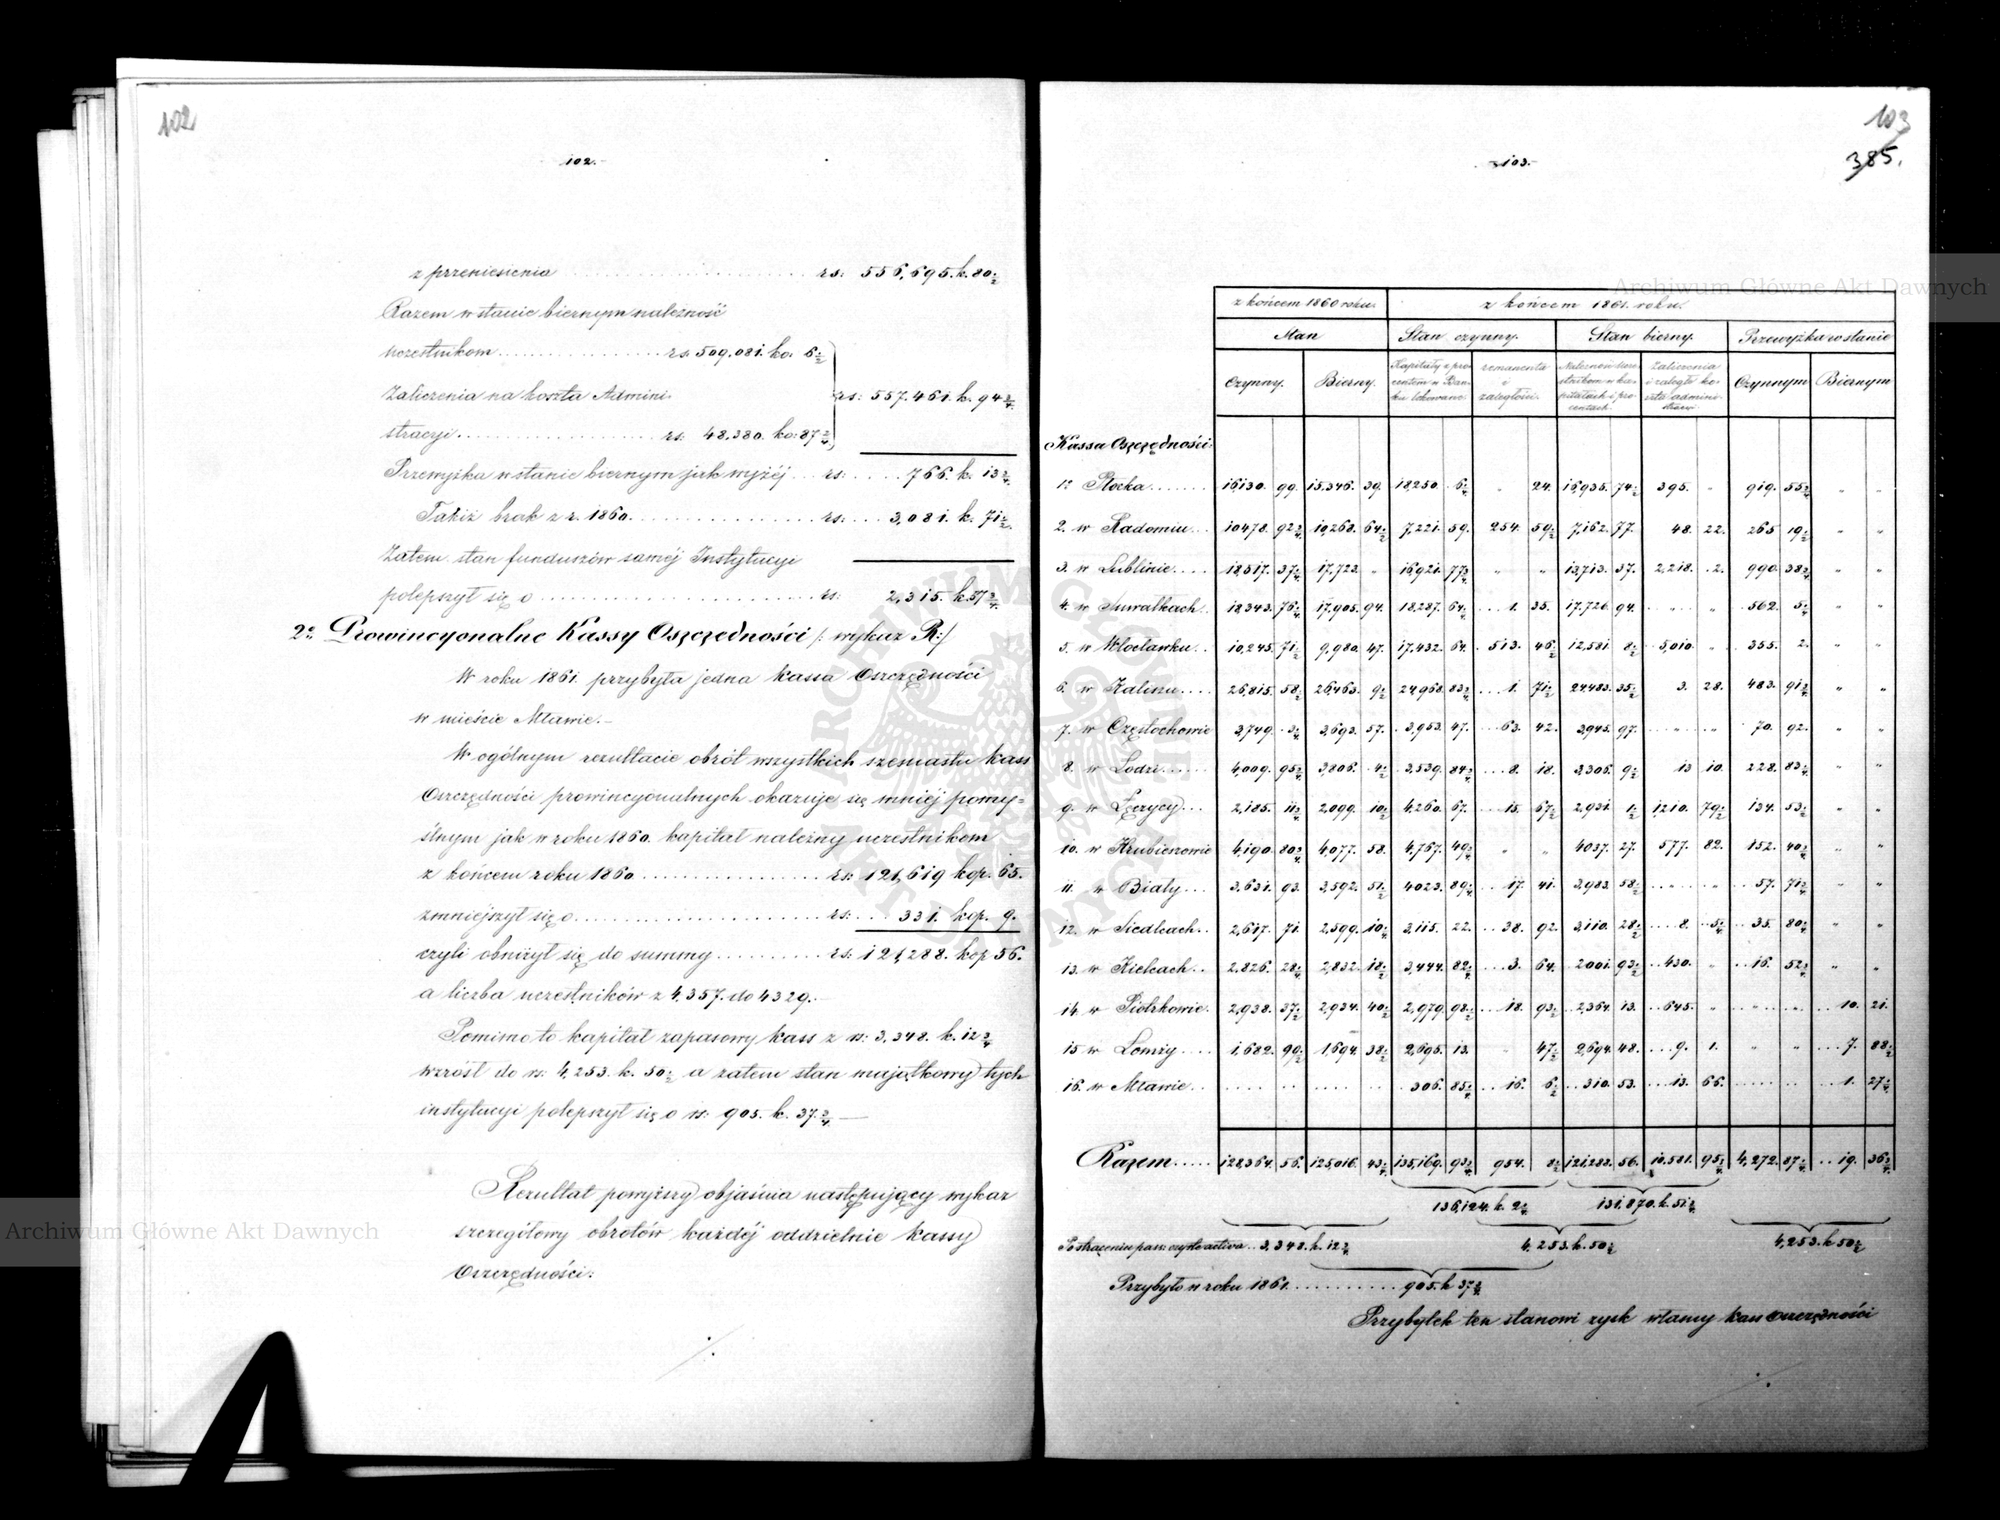 102
102.
z przeniesienia rs: 556,695. k. 80 1/2
Razem w stanie biernym należność
uczestnikom rs: 509,081. ko: 6 1/2
Zaliczenia na koszta Admini-
rs: 557,461. k. 94 3/4
stracyi rs: 48,380. ko: 87
Przewyżka w stanie biernym jak wyżéj rs: 766. k. 13
Takiż brak z r. 1860. rs: 3,081. k. 71
Zatem stan funduszów saméj Instytucyi
polepszył się o rs: 2,315. k. 57
2o Prowincyonalne Kassy Oszczędności /: wykaz R:/
W roku 1861. przybyła jedna kassa Oszczędności
w mieście Mławie.–
W ogólnym rezultacie obrót wszystkich szesnastu kass
Oszczędności prowincyonalnych okazuje się mniéj pomy=
ślnym jak w roku 1860. kapitał należny uczestnikom
z końcem roku 1860 rs: 121,619 kop. 65.
zmniejszył się o rs: 331. kop. 9.
czyli obniżył się do summy rs: 121,288. kop 56.
a liczba uczestników z 4,357. do 4329.–
Pomimo to kapitał zapasowy kass z rs: 3,348. k. 12 3/4
wzrósł do rs: 4,253. k. 50 1/2 a zatem stan majątkowy tych
instytucyi polepszył się o rs: 905. k. 37 3/4
Rezultat powyższy objaśnia następujący wykaz
szczegółowy obrotów każdéj oddzielnie kassy
Oszczędności:
103
385.
103.
z końcem 1860 roku. z końcem 1861. roku.
Stan Stan czynny. Stan bierny. Przewyżka w stanie
Czynny. Bierny. Kapitały z procentem w Banku lokowane remanenta i zaległości. Należność uczestnikom w kapitałach i procentach. Zaliczenia i zaległe koszta administracyi Czynnym Biernym
Kassa Oszczędności:
1o Płocka 16,130. 99. 15,346. 39. 18,250. 6 „ 24. 16,935. 74 395. „ 919. 55 „ „
2. w Radomiu 10478. 92 10,268. 64 7,221. 59. 254. 59 7,162. 77. 48. 22. 265 19 „ „
3. w Lublinie 18,517. 37 17,723. „ 16,921. 77 „ „ 13,713. 37. 2,218. 2. 990. 38 „ „
4. w Suwałkach 18,343. 76 17,905. 94. 18,287. 64 1. 35. 17,726. 94. „ „ 562. 5 „ „
5. w Włocławku 10,245. 71 9,980. 47. 17,432. 64. 513. 46 12,581. 8 5,010. „ 355. 2. „ „
6. w Kaliszu 26,815. 58 26,463. 9 24,968. 83 1. 71 24483. 35 3. 28. 483. 91 „ „
7. w Częstochowie 3,749. 3 3,693. 57. 3,953. 47. 63. 42. 3,945. 97. „ „ 70. 92. „ „
8. w Łodzi 4,009. 95 3,806. 4 3,539. 84 8. 18. 3,306. 9 13 10. 228. 83 „ „
9. w Łęczycy 2,185. 11 2,099. 10 4,260. 67. 15. 67 2,931. 1 1,210. 79 134. 53 „ „
10. w Hrubieszowie 4,190. 80 4,077. 58. 4,767. 49 „ „ 4037. 27. 577. 82. 152. 40 „ „
11. w Biały 3,631. 93. 3,592. 51 4023. 89 17. 41. 3,983. 58 „ „ 57. 71 „ „
12. w Siedlcach 2,617. 71. 2,599. 10 3,115. 22. 38. 92. 3,110. 28 8. 5 35. 80 „ „
13. w Kielcach 2,826. 28 2,832. 18 3,444. 82 3. 64. 2001. 93 430. „ 16. 52 „ „
14. w Piotrkowie 2,938. 37 2,934. 40 2,979. 98 18. 93 2,364. 13. 645. „ „ „ 10. 21.
15. w Łomży 1,682. 90 1,694. 38 2,695. 13. „ 47 2,694. 48. 9. 1. „ „ 7. 88
16. w Mławie 306. 85 16. 6 310. 53. 13. 66. 1. 27
Razem 128,364. 56. 125,016. 43 135,169. 93 954. 8 121,288. 56. 10,581. 95 4,272. 87 19. 36
136,124. k. 2 131,870. k. 51
Po strąceniu pass: czyste activa 3,348. k. 12 3/4 4,253. k. 50 1/2 4,253. k 50 1/2
Przybyło w roku 1861 905. k 37 3/4
Przybytek ten stanowi zysk własny kass Oszczędności
Archiwum Główne Akt Dawnych
Archiwum Główne Akt Dawnych